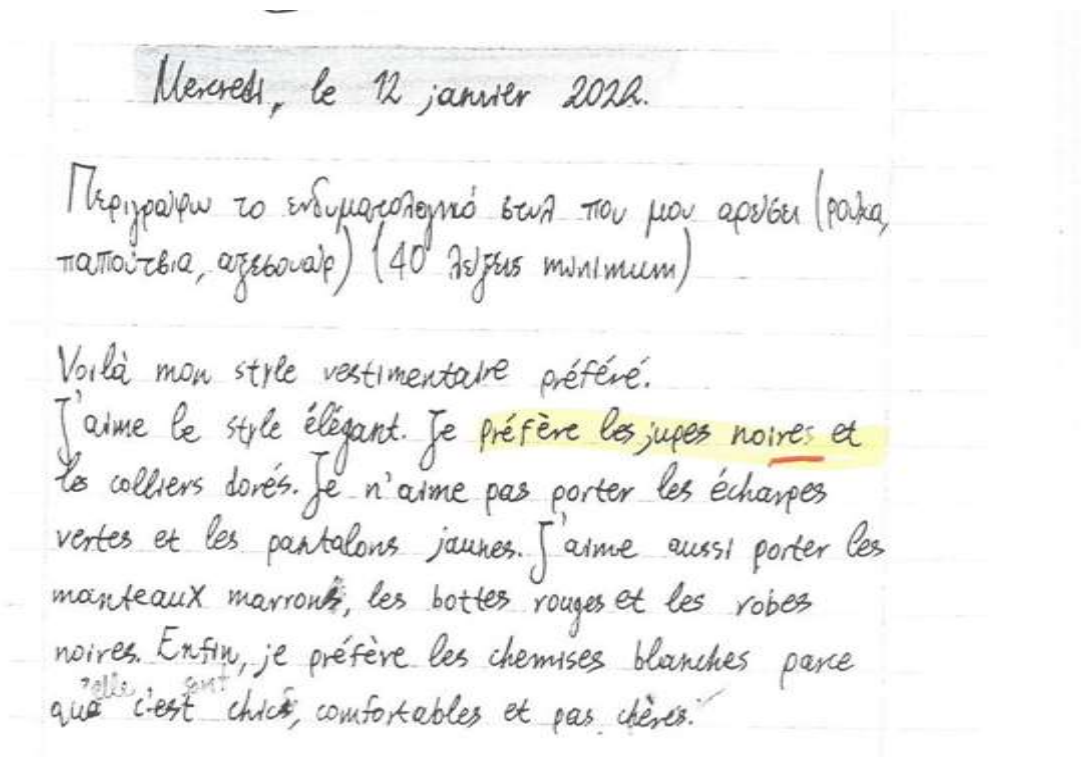 Mercredi, le 12 janvier 2022.
Περιγράφω το ενδυματολογικό στυλ που μου αρέσει (ρούχα,
παπούτσια, αξεσουάρ) (40 λέξεις minimum)
Voilà mon style vestimentaire préféré.
J'aime le style élégant. Je préfère les jupes noires et
les colliers dorés. Je n'aime pas porter les écharpes
vertes et les pantalons jaunes. J'aime aussi porter les
manteaux marrons, les bottes rouges et les robes
noires. Enfin, je préfère les chemises blanches parce
'elle sont
que c'est chics, comfortables et pas chères.